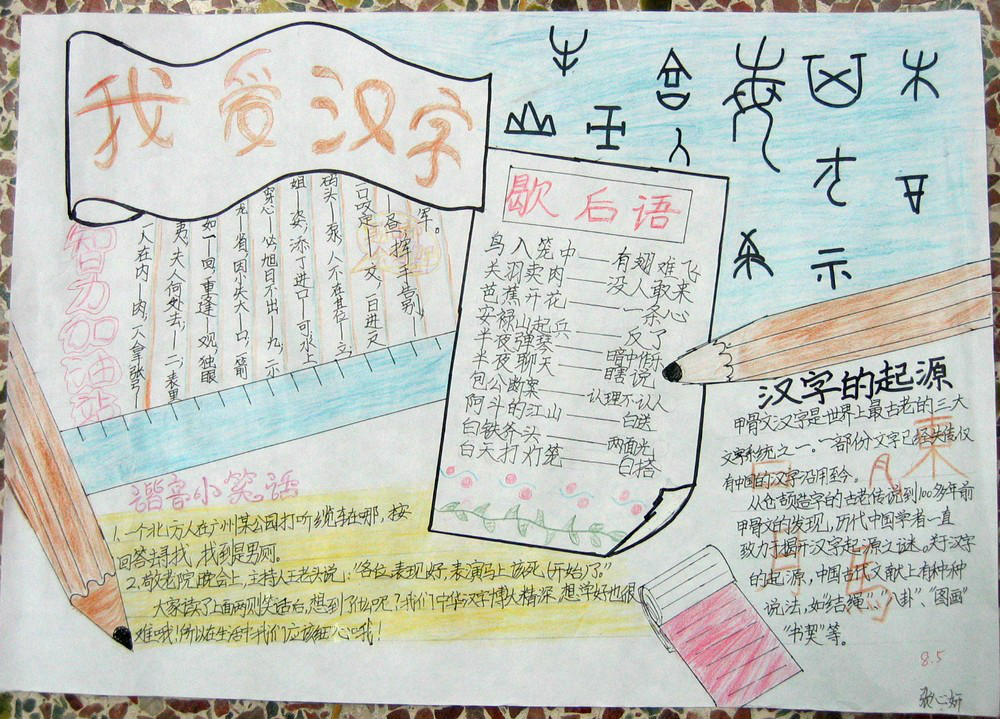 我爱汉字
智力加油站
军。
一昼，挥手告别—
一口咬定——交，一日进又
码头—泵，人不在其位—立，
姐—姿，添丁进口—可，水上
穿心—必，旭日不出—九，二示
龙—省，因小失大—口，箭
如一—回，重逢—观，独眼
夷，夫人何处去，—二，表里
一人在内—肉，一人拿张弓—
歇后语
鸟入笼中——有翅难飞
关羽卖肉——没人敢来
芭蕉开花——一条心
安禄山起兵——反了
半夜弹琴——暗中作乐
半夜聊天——瞎说
包公断案——认理不认人
阿斗的江山——白送
白铁斧头——两面光
白天打灯笼——白搭
汉字的起源
甲骨文汉字是世界上最古老的三大
文字系统之一。一部份文字已经失传，仅
有中国的汉字沿用至今。
从仓颉造字的古老传说到100多年前
甲骨文的发现，历代中国学者一直
致力于揭开汉字起源之谜。关于汉字
的起源，中国古代文献上有种种
说法，如“结绳”、“八卦”、“图画”
“书契”等。
谐音小笑话
1.一个北方人在广州某公园打听缆车在哪，按
回答去寻找，找到是男厕。
2.敬老院晚会上，主持人王老头说：“各位表现好，表演马上该死（开始）了。”
大家读了上面两则笑话后，想到了什么呢？我们中华汉字博大精深，想学好也很
难哦！所以在生活中我们应该细心哦！
東
月
8.5